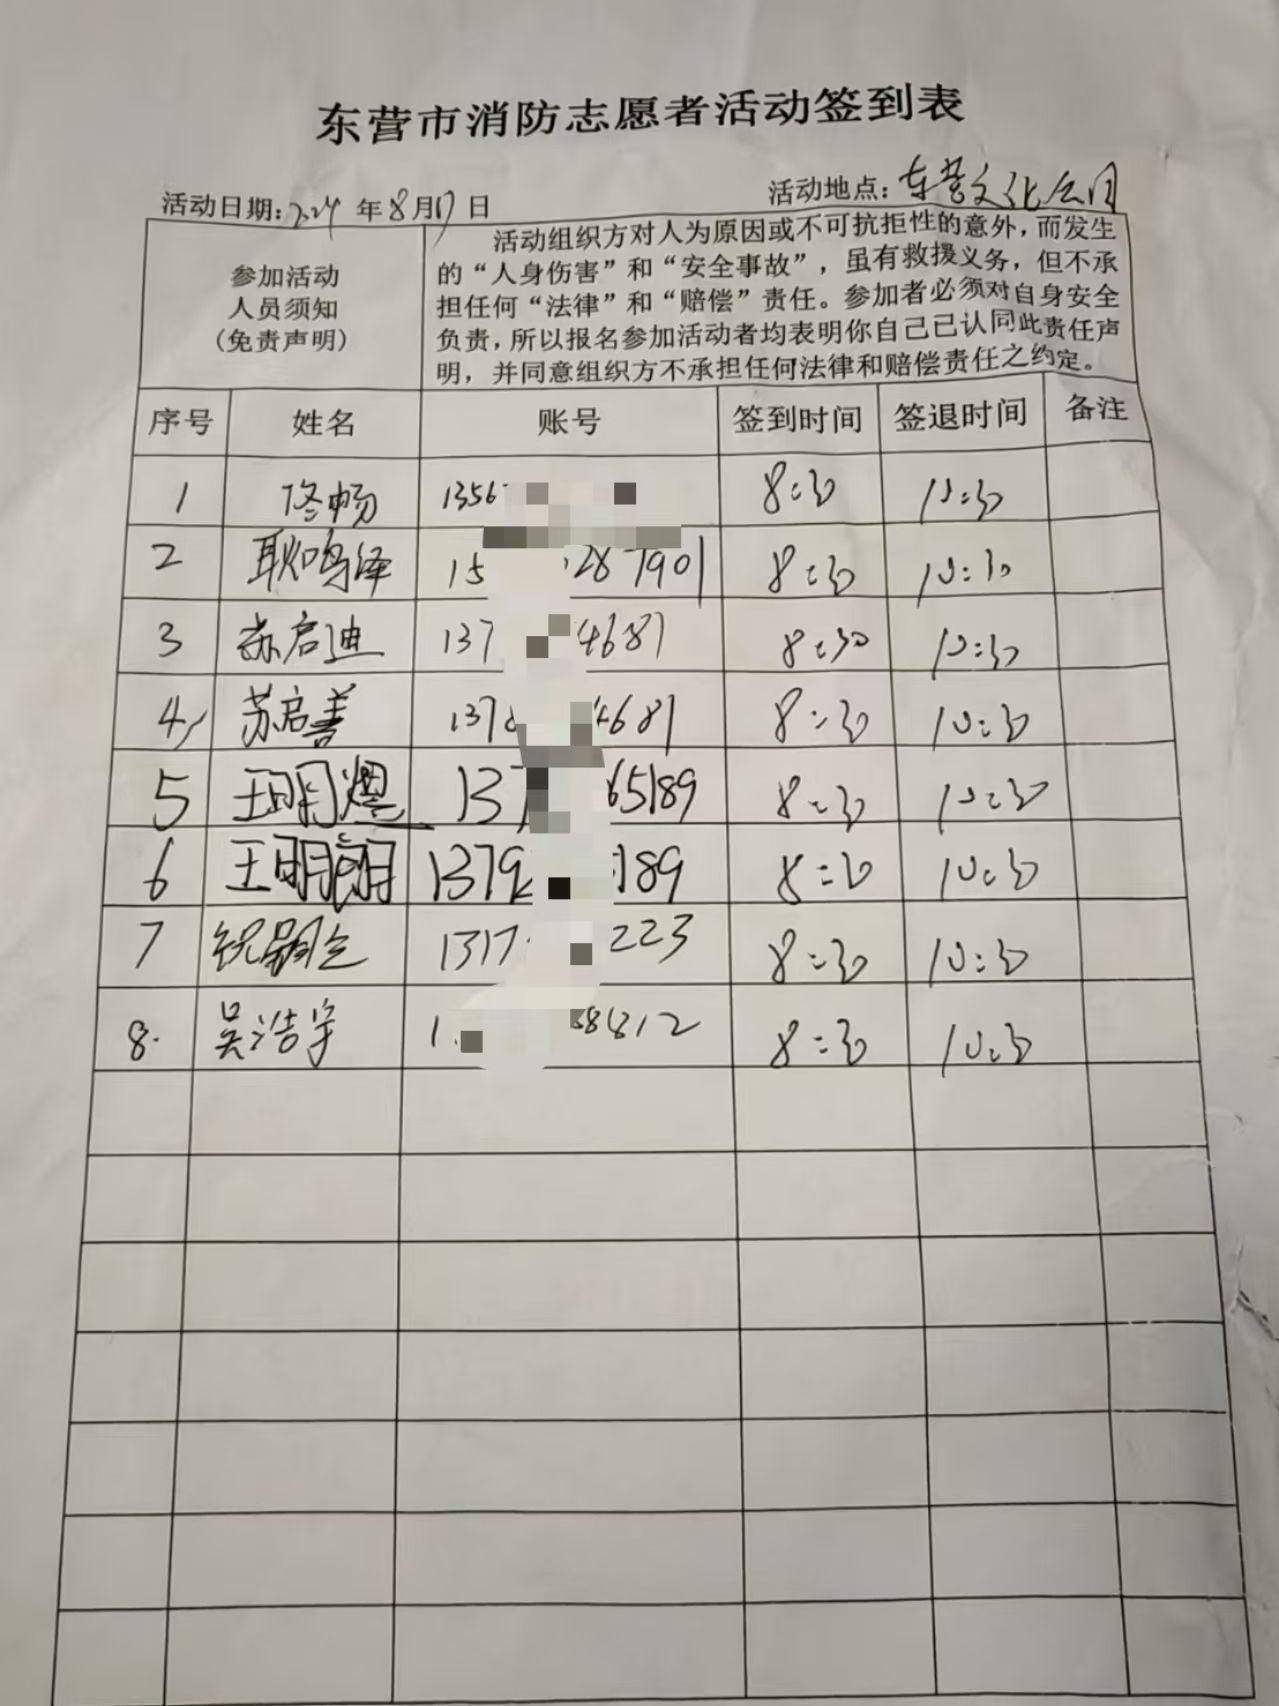 东营市消防志愿者活动签到表
活动日期:2024年8月17日 活动地点:东营文化公园
参加活动
人员须知
(免责声明)
活动组织方对人为原因或不可抗拒性的意外,而发生
的“人身伤害”和“安全事故”,虽有救援义务,但不承
担任何“法律”和“赔偿”责任。参加者必须对自身安全
负责,所以报名参加活动者均表明你自己已认同此责任声
明,并同意组织方不承担任何法律和赔偿责任之约定。
序号 姓名 账号 签到时间 签退时间 备注
1 佟畅 1356 8:30 10:30
2 耿鸣泽 15 287901 8:30 10:30
3 苏启迪 137 4681 8:30 10:30
4 苏启善 1378 4681 8:30 10:30
5 王明煜 137 65189 8:30 10:30
6 王明朗 1379 189 8:30 10:30
7 1317 223 8:30 10:30
8. 吴浩宇 1 8812 8:30 10:30